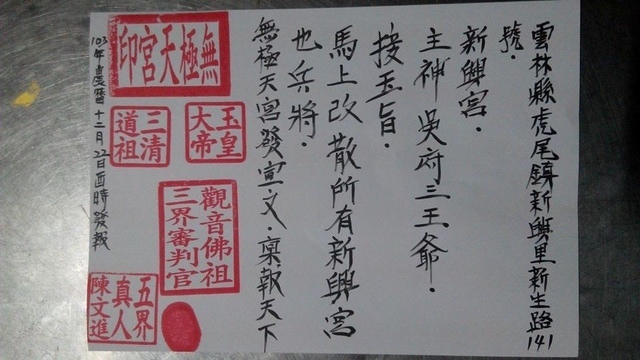 雲林縣虎尾鎮新興里新生路141
號.
新興宮.
主神 吳府三王爺.
接玉旨.
馬上改 散所有新興宮
也兵將.
無極天宮發宣文.稟報天下
無極天宮印
玉皇大帝
三清道祖
觀音佛祖
三界審判官
五界真人
陳文進
103年農曆十二月22日酉時發報